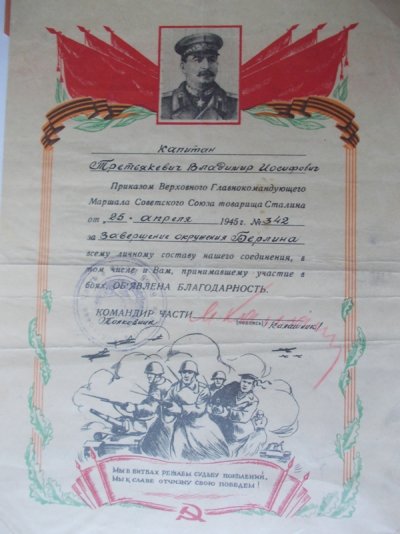 Капитан
Третьякевич Владимир Иосифович
Приказом Верховного Главнокомандующего
Маршала Советского Союза товарища Сталина
от „25“ апреля 1945 г. № 342
за Завершение окружения Берлина
всему личному составу нашего соединения, в
том числе и Вам, принимавшему участие в
боях, ОБ'ЯВЛЕНА БЛАГОДАРНОСТЬ.
КОМАНДИР ЧАСТИ
Полковник (подпись)
МЫ В БИТВАХ РЕШАЕМ СУДЬБУ ПОКОЛЕНИЙ,
МЫ К СЛАВЕ ОТЧИЗНУ СВОЮ ПОВЕДЕМ!